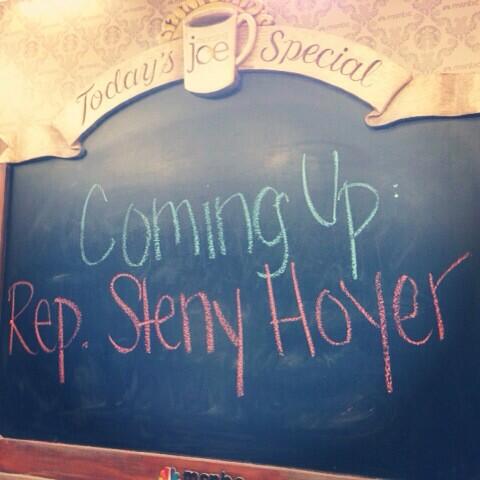 Today's joe Special
Coming Up:
Rep. Steny Hoyer
msnbc